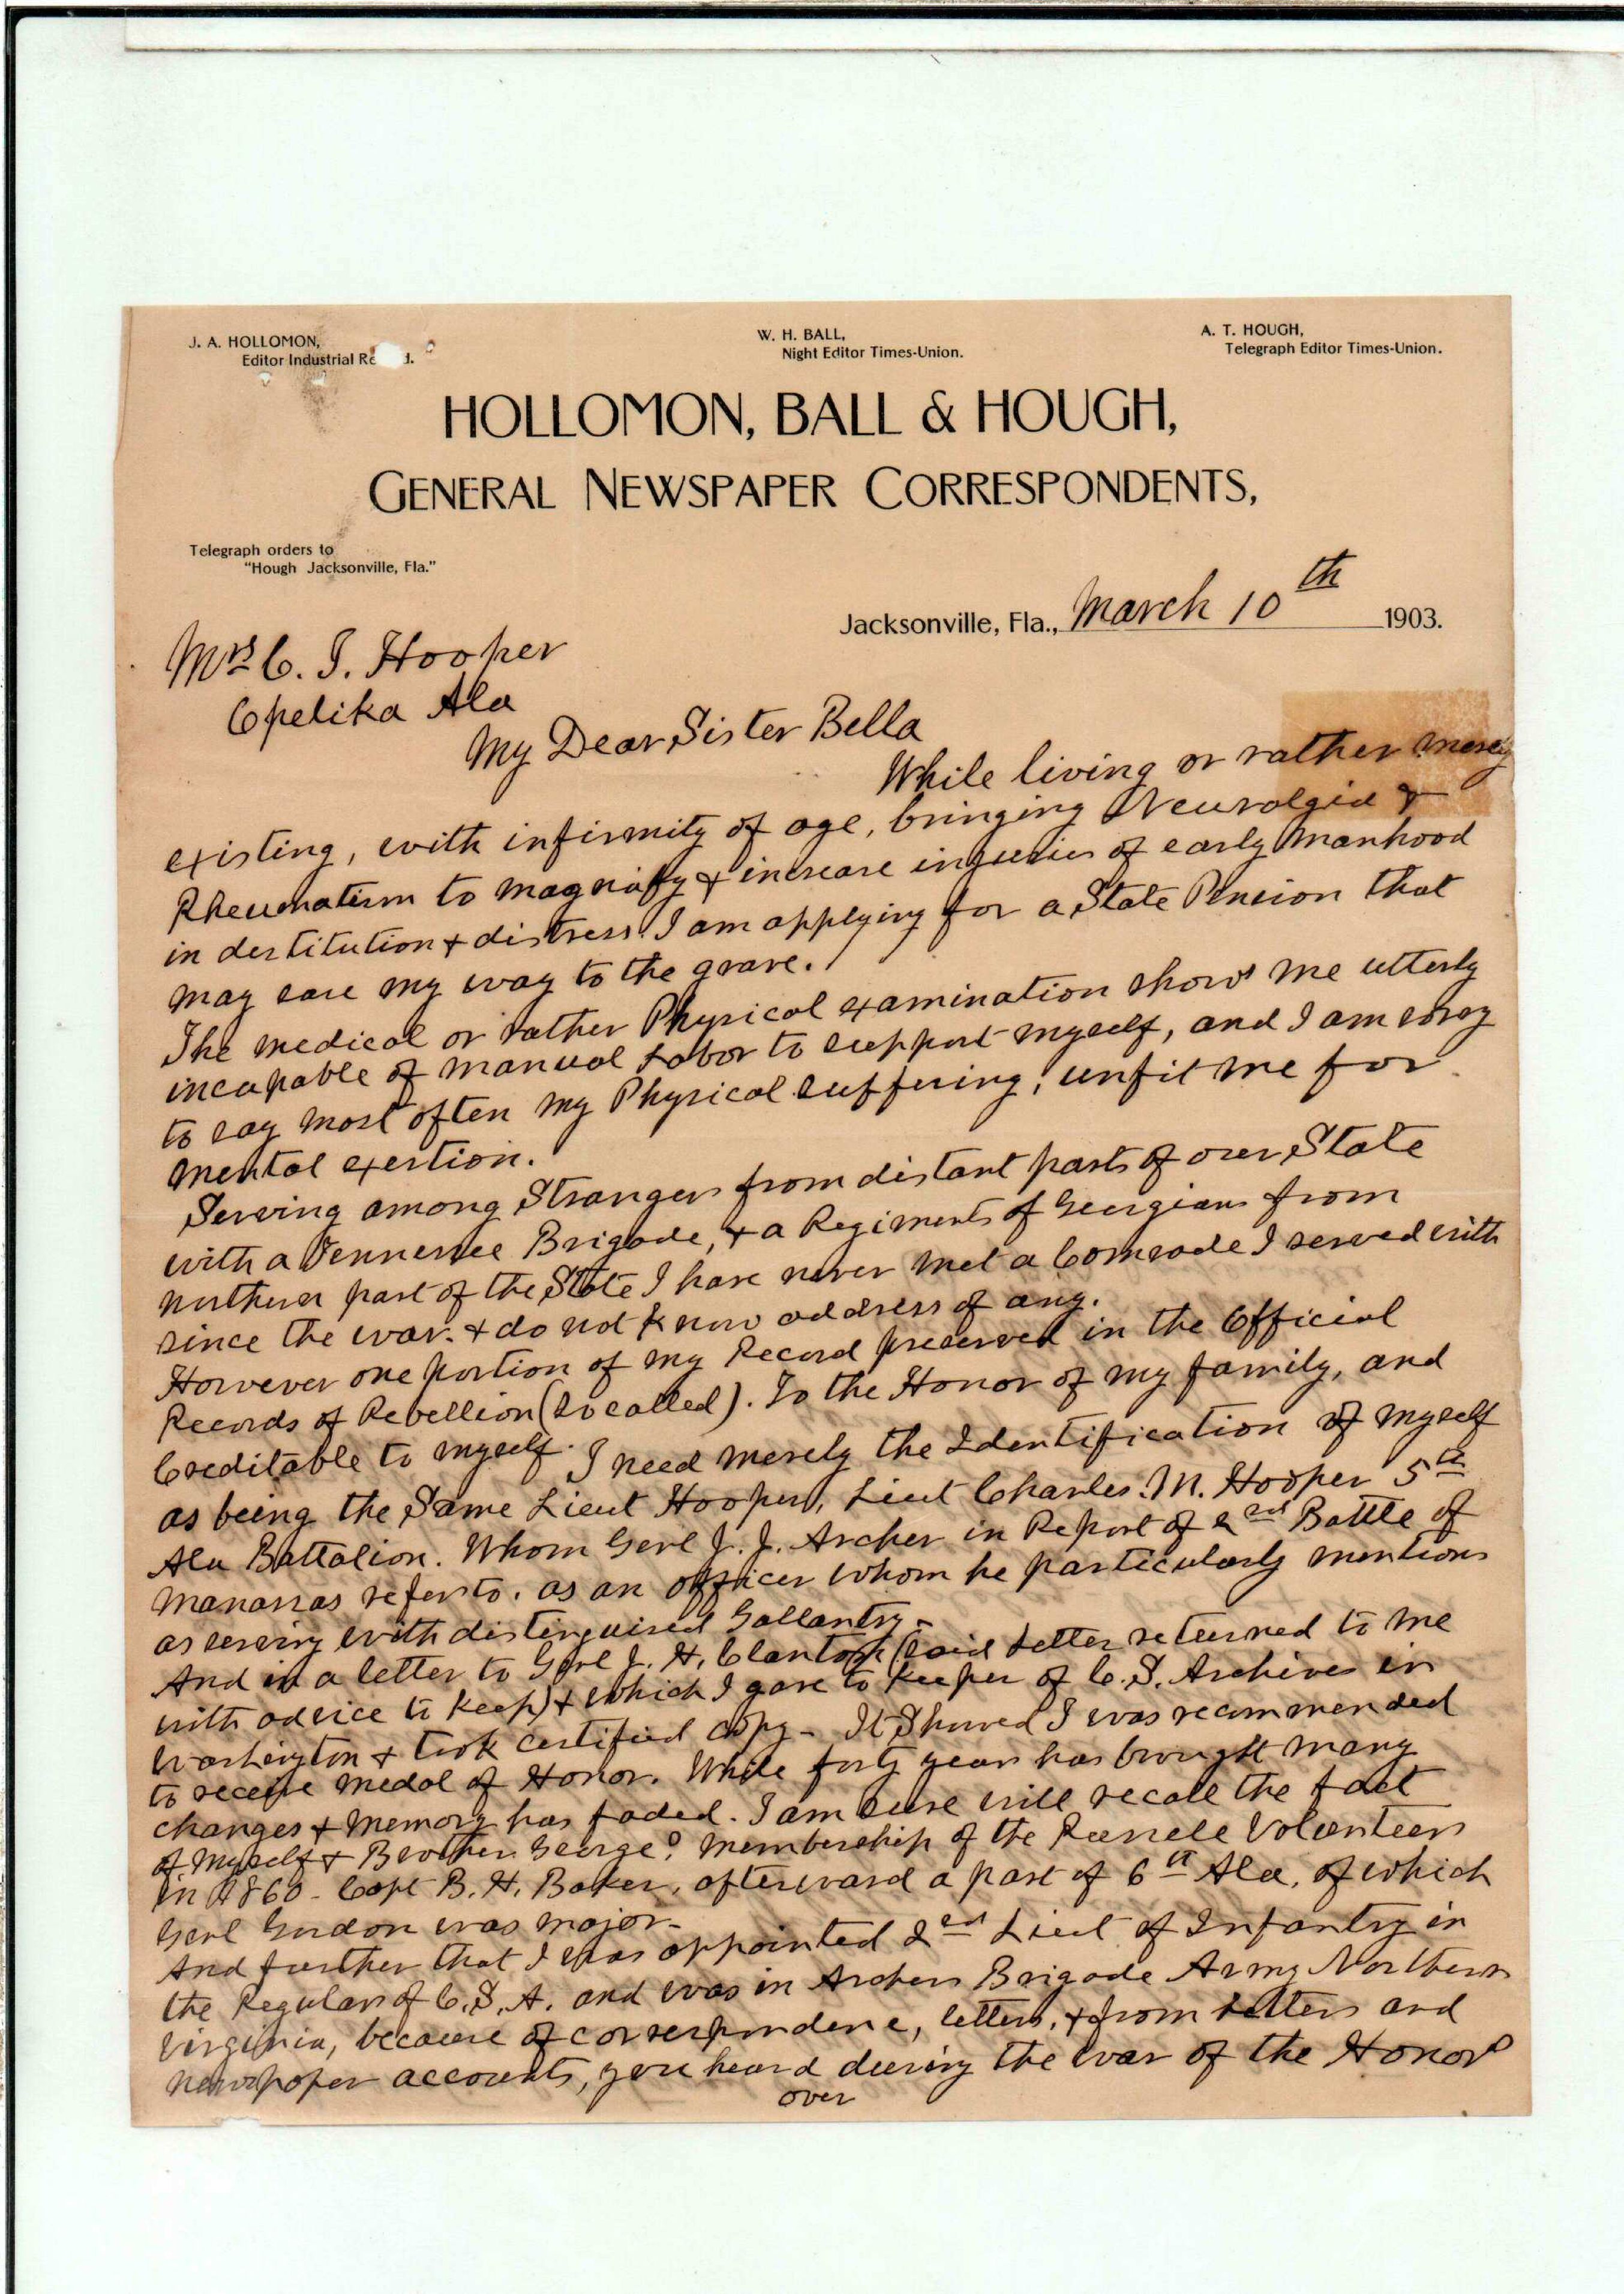 J. A. HOLLOMON,
Editor Industrial Re d.
W. H. BALL,
Night Editor Times-Union.
A. T. HOUGH,
Telegraph Editor Times-Union.
HOLLOMON, BALL & HOUGH,
GENERAL NEWSPAPER CORRESPONDENTS,
Telegraph orders to
"Hough Jacksonville, Fla."
Jacksonville, Fla., March 10th 1903.
Mrs C. I. Hooper
Opelika Ala
My Dear Sister Bella
While living or rather merely
existing, with infirmity of age, bringing Neuralgia &
Rheumatism to magnify & increase injuries of early Manhood
in destitution & distress. I am applying for a State Pension that
may ease my way to the grave.
The medical or rather Physical examination shows me utterly
incapable of manual Labor to support myself, and I am sorry
to say most often my Physical suffering, unfit me for
mental exertion.
Serving among Strangers from distant parts of our State
with a Tennessee Brigade, & a Regiments of Georgians from
northern part of the State I have never met a Comrade I served with
since the war. & do not know address of any.
However one portion of my Record preserved in the Official
Records of Rebellion (so called). To the Honor of my family, and
Creditable to myself. I need merely the Identification of myself
as being the Same Lieut Hooper, Lieut Charles. M. Hooper 5th
Ala Battalion. Whom Genl J. J. Archer in Report of 2nd Battle of
Manassas refers to. as an officer whom he particularly mentions
as serving with distinguised Gallantry-
And in a letter to Genl J. H. Clanton (said Letter returned to me
with advice to keep) & which I gave to Keeper of C. S. Archives in
Washington & took certified copy - It Showed I was recommended
to receive medal of Honor. While forty year has brought many
changes & memory has faded. I am sure will recall the fact
of myself & Brother George's membership of the Russell Volunteers
in 1860 - Capt B. H. Baker, afterward a part of 6th Ala, of which
Genl Gordon was major-
And further that I was appointed 2nd Lieut of Infantry in
the Regulars of C. S. A. and was in Archers Brigade Army Northern
Virginia, because of correspondence, letters, & from Letters and
newspaper accounts, you heard during the war of the Honors
over